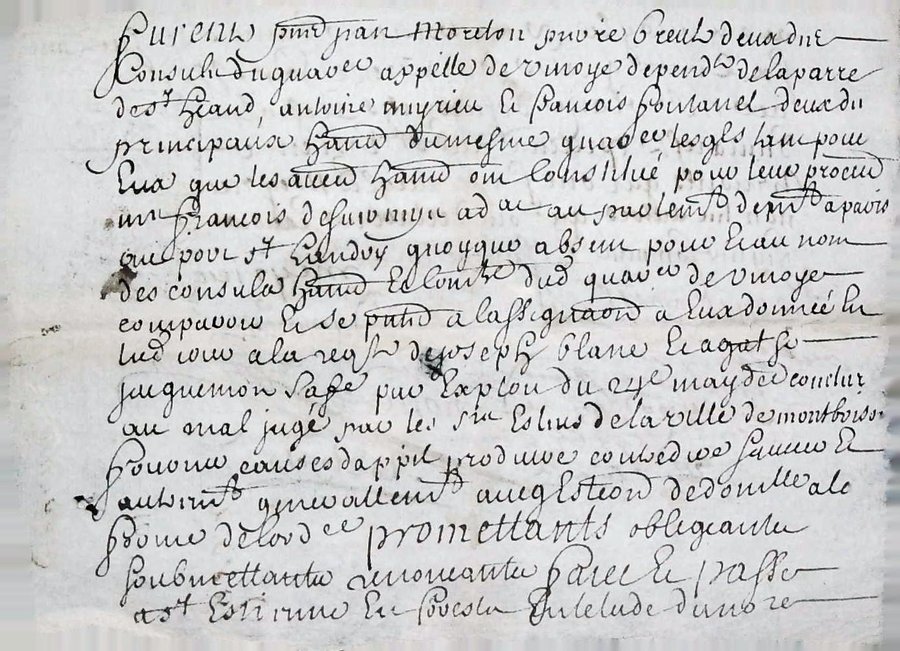 furent pnts jean Morelon pierre breul deux des
Consuls du quar er appellé de vinoye dépend te de la parre
de st heand, antoine meyrieu et francois fontanel deux du
principaux habitd du mesme quar er lesqls tant pour
Eux que les autres habitd ont Constitué pour leur procur
me francois ad at au parlemt de a paris
ou pour st Landry quoyque absent pour Et au nom
des consuls habitd Et dud quar er de vinoye
comparoir Et se pntd a lassignaord a Eux donnée En
lad cour a la reqte de joseph blanc Et agathe
jacquemon sa fe par Exploit du 24e may der conclur
au mal jugé par les srs Eslus de la ville de montbriso
fournir causes dappel produire contredire sauver Et
autremt generallemt avec Estiond de domille a la
forme de lord ce promettants obligeants
soubmettants renoncants faict Et passé
a st Estienne En forests Estude du nore